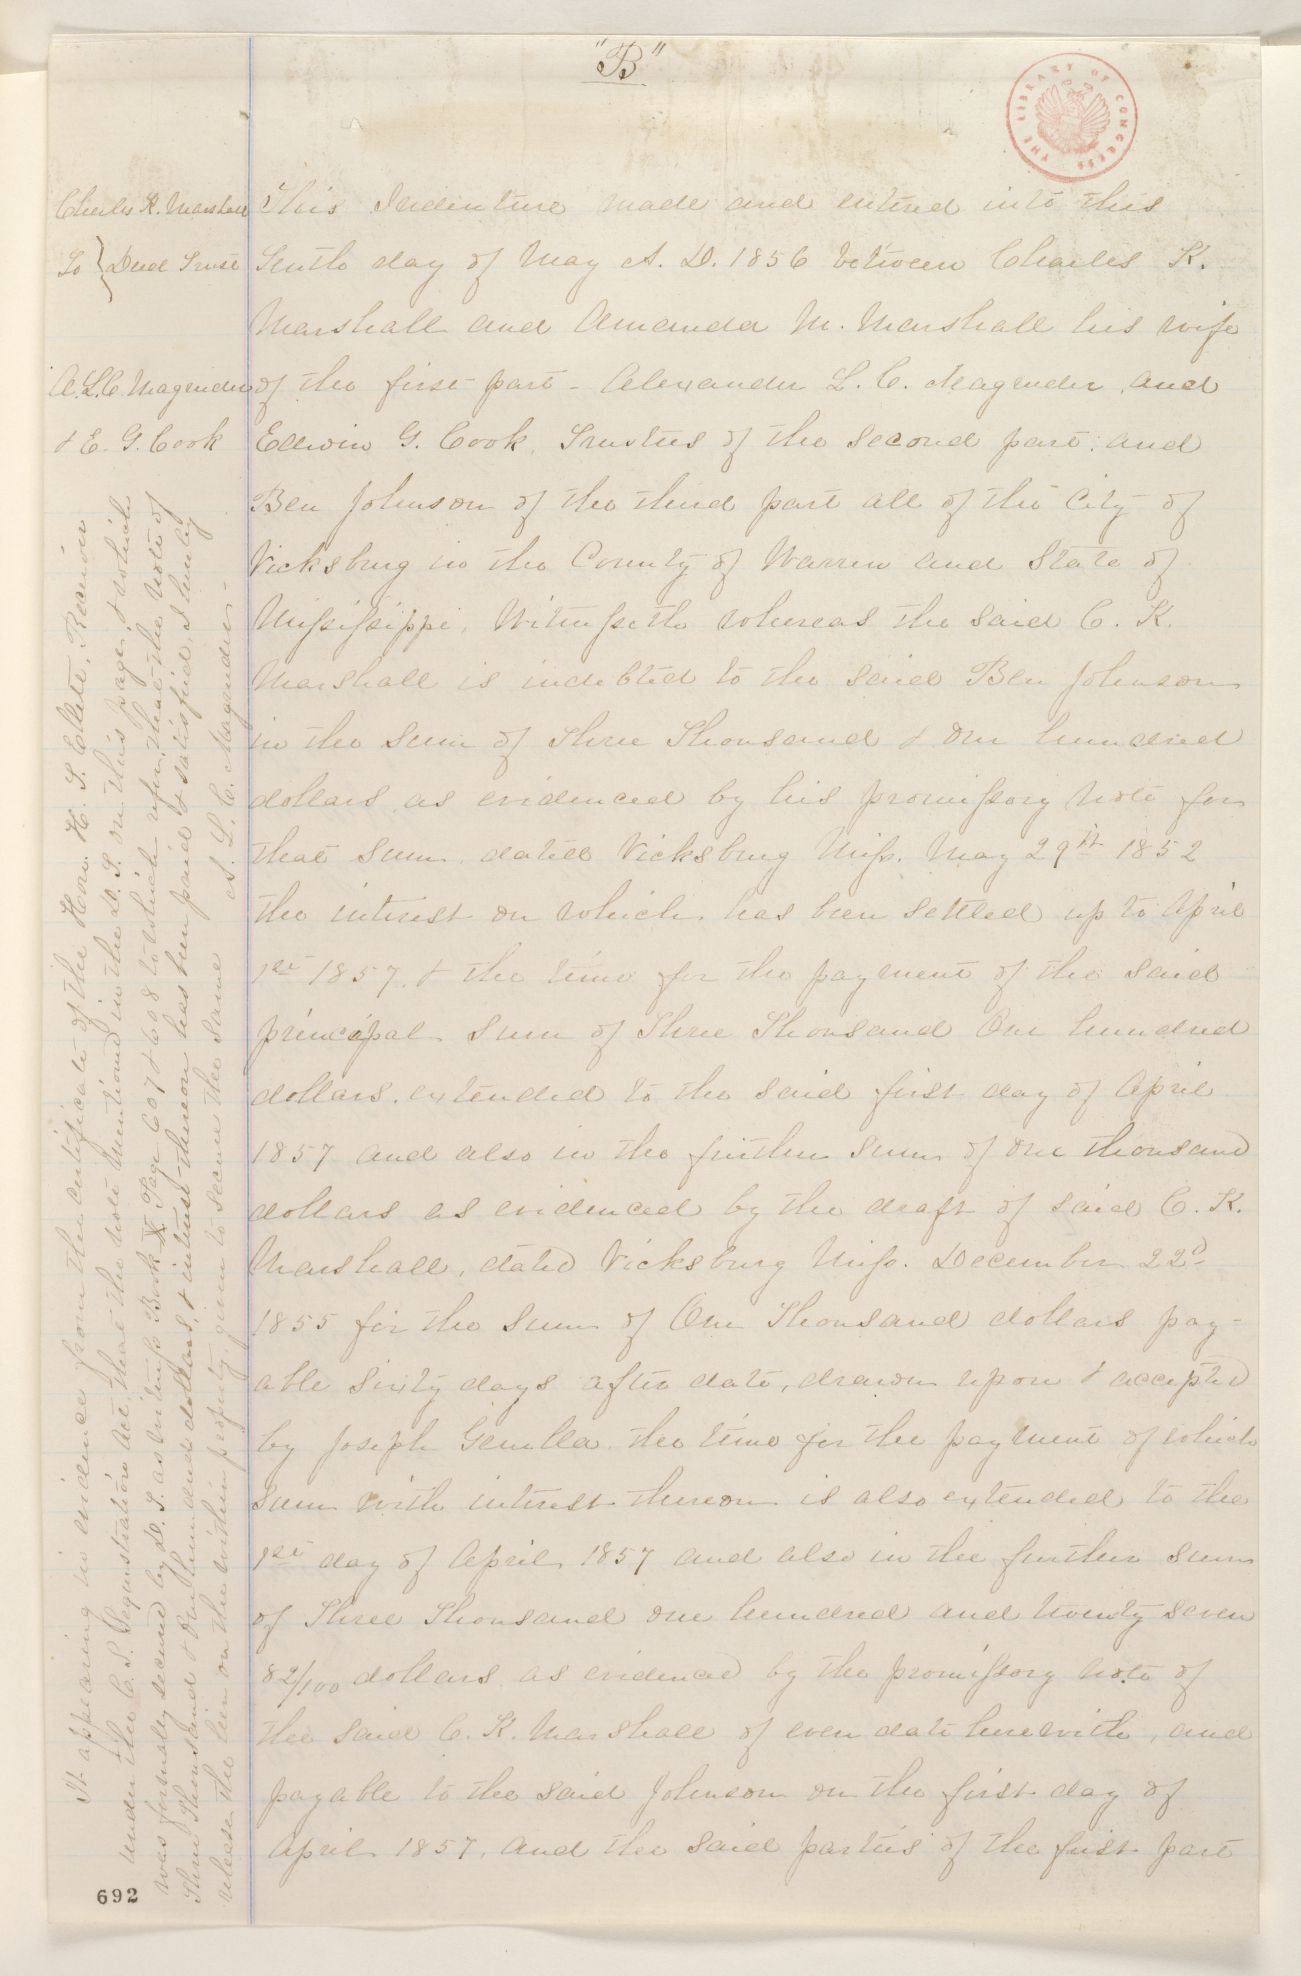 "B"
THE LIBRARY OF CONGRESS
Charles K. Marshall
To } Deed Trust
A. L. C. Magruder
& E. G. Cook
This Indenture made and entered into this
Tenth day of May A. D. 1856 between Charles K.
Marshall and Amanda M. Marshall his wife
of the first part - Alexander L. C. Magruder and
Edwin G. Cook, Trustees of the second part, and
Ben Johnson of the third part all of the City of
Vicksburg in the County of Warren and State of
Mississippi, Witnesseth whereas the said C. K.
Marshall is indebted to the said Ben Johnson
in the sum of Three Thousand & One hundred
dollars as evidenced by his promissory note for
that sum, dated Vicksburg Miss. May 29th 1852
the interest on which has been settled up to April
1st 1857, & the time for the payment of the said
principal sum of Three Thousand One hundred
dollars, extended to the said first day of April
1857 and also in the further sum of one thousand
dollars as evidenced by the draft of said C. K.
Marshall, dated Vicksburg Miss. December 22d
1855 for the sum of One Thousand dollars pay-
able sixty days after date, drawn upon & accepted
by Joseph Genella the time for the payment of which
sum with interest thereon is also extended to the
1st day of April 1857 and also in the further sum
of Three Thousand one hundred and twenty seven
82/100 dollars as evidenced by the promissory note of
the said C. K. Marshall of even date herewith, and
payable to the said Johnson on the first day of
April 1857, and the said parties of the first part
It appearing in evidence from the certificate of the Hon. H. S. Receiver
under the C. S. Sequestration Act, that the note mentioned in the D. T. on this page, & which
was formally secured by D. T. as Book X Page 607 & 608 to which refer, that the note of
Three Thousand & One hundred dollars, & interest thereon has been paid & satisfied, I hereby
release the lien on the within property, given to secure the same
A. L. C. Magruder -
692